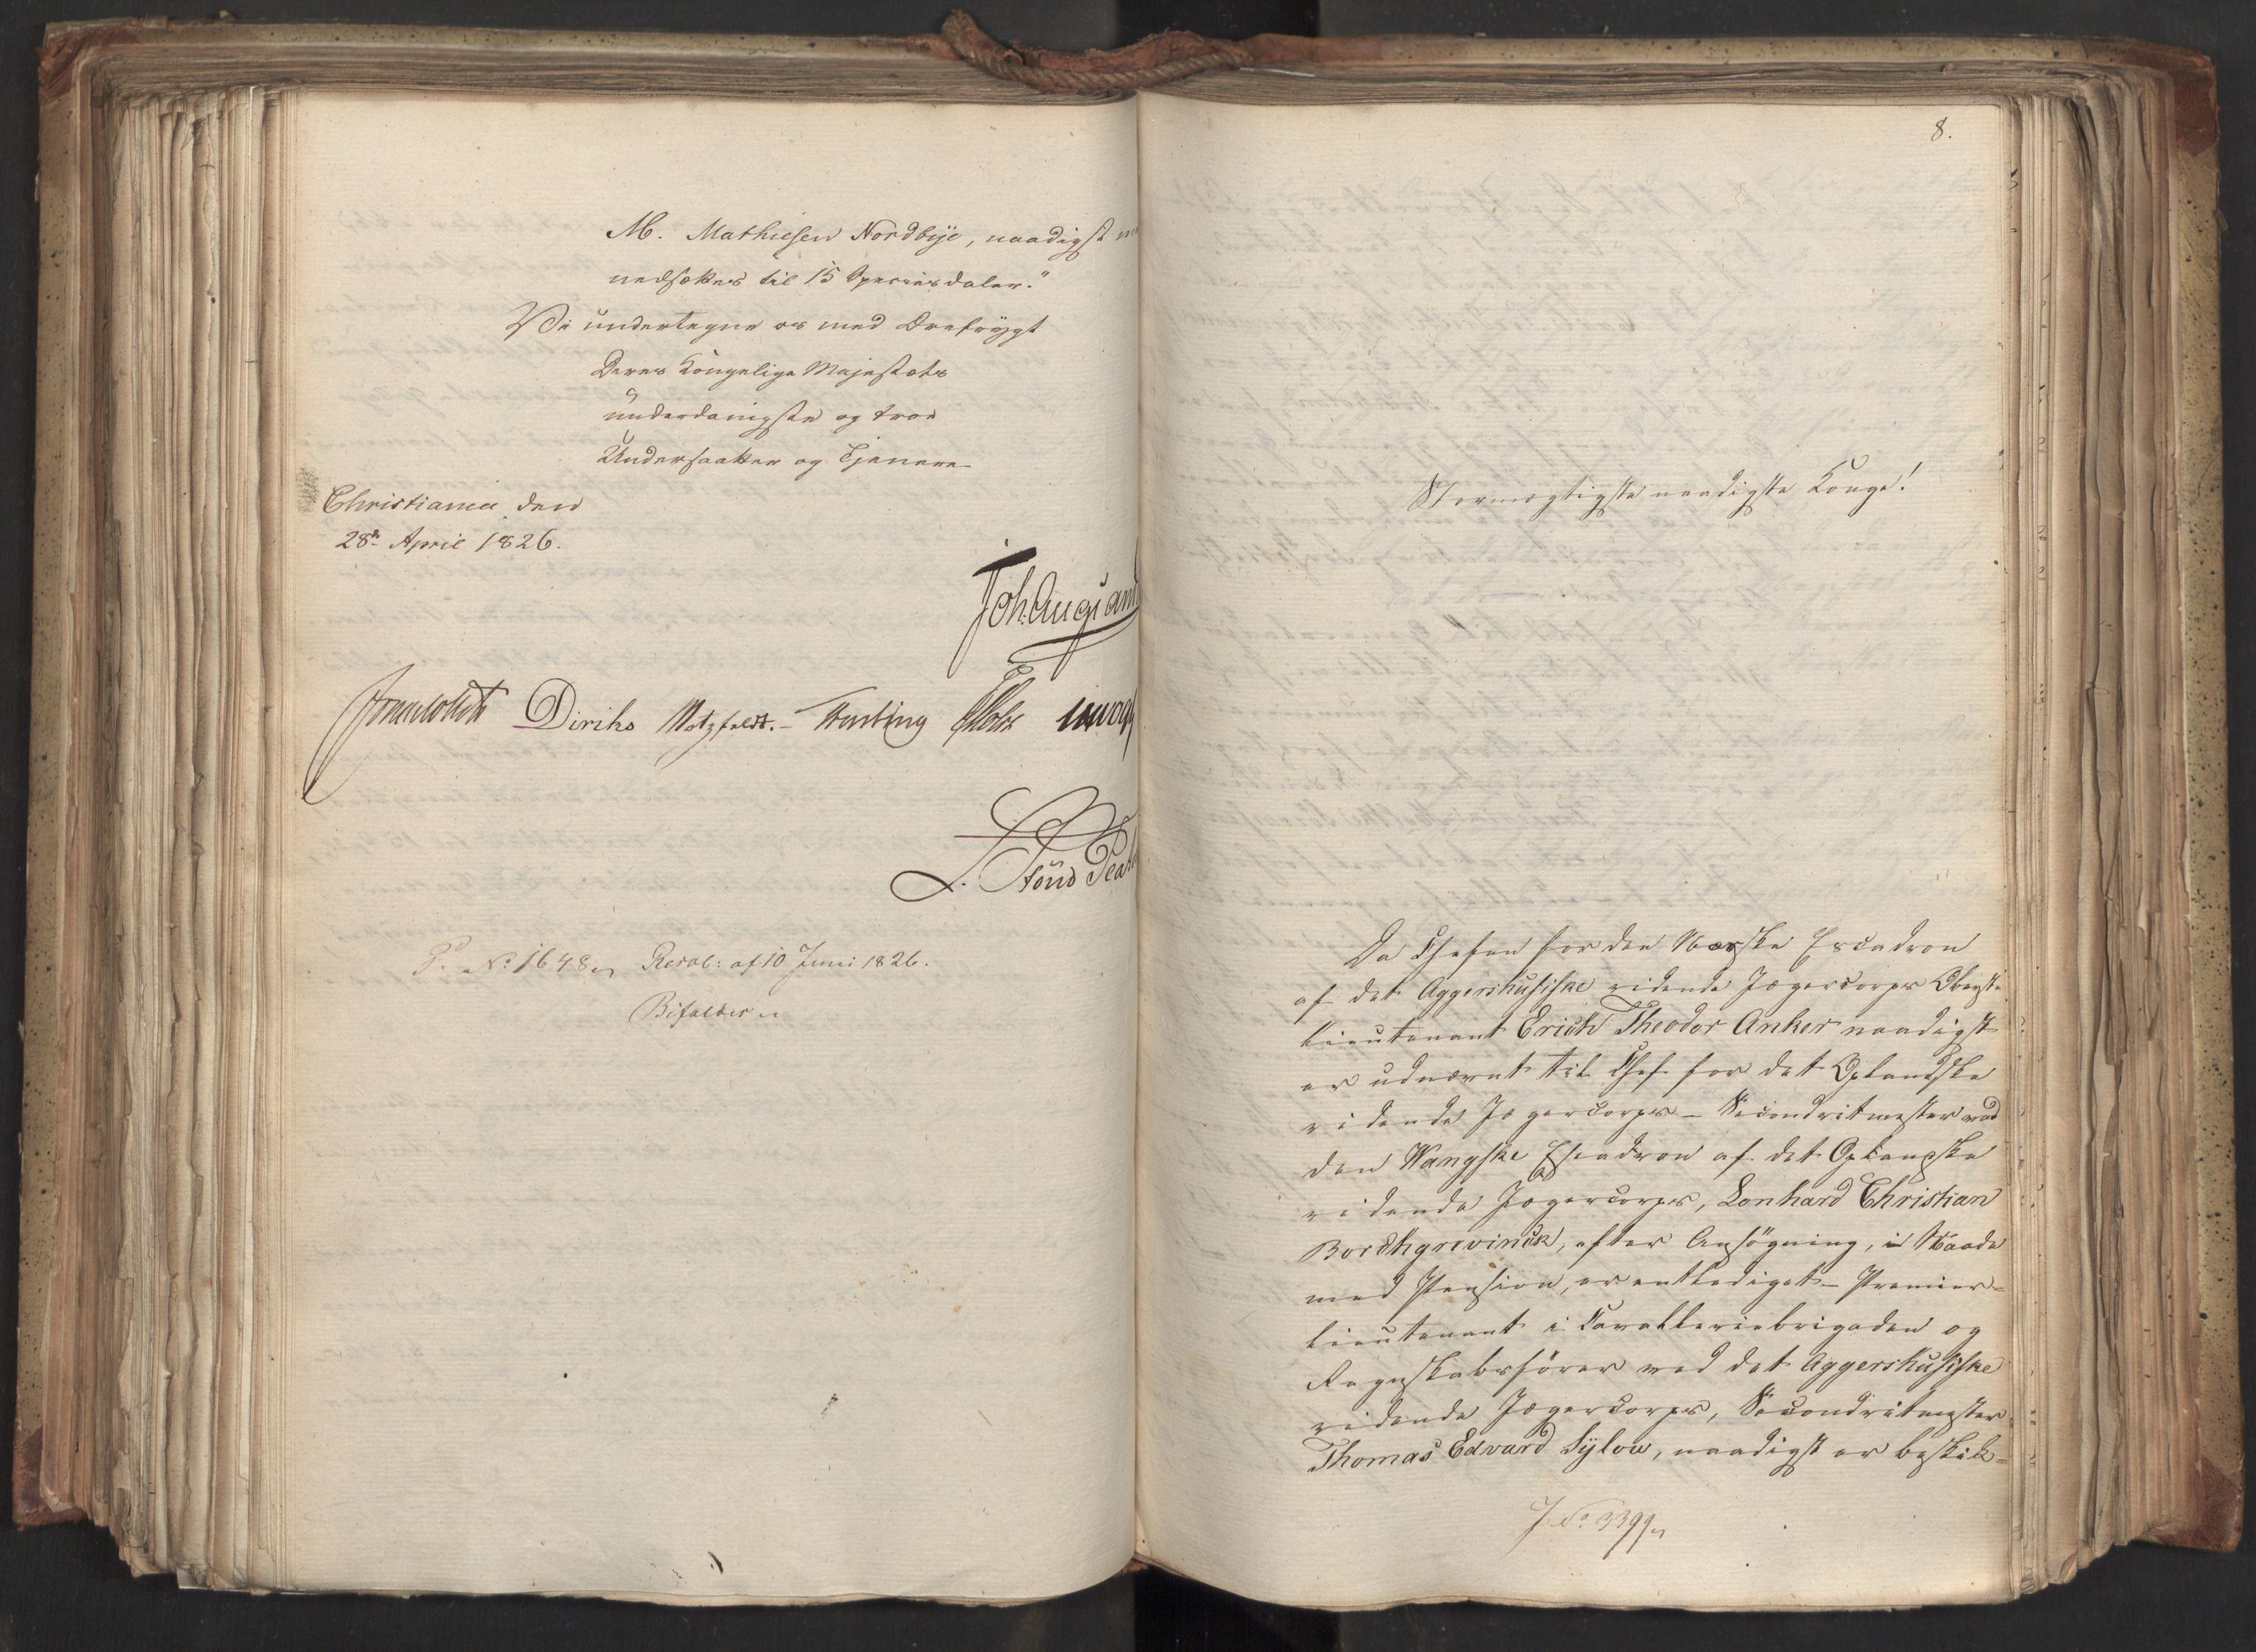 M. Mathiesen Nordbye, naadigst
nedsættes til 15 Speciesdaler."
Vi undertegne os med Ærefrygt
Deres Kongelige Majestæts
underdanigste og troe
Undersaatter og Tjenere
Christiania den
28de April 1826.
Joh. Aug. Sand
Diriks Motzfeldt. Fasting Holst
L. Stoud Plat
P. No. 1648. Resol: af 10 Juni 1826.
Bifaldes
8.
Stormægtigste naadigste Konge!
Da Chefen for den Næsske Escadron
af det Aggershusiske ridende Jægercorps Oberst-
lieutenant Erich Theodor Anker naadigst
er udnævnt til Chef for det Oplandske
ridende Jægercorps - Secondritmester ved
den Wangske Escadron af det Oplandske
ridende Jægercorps, Lonhard Christian
Borchgrevinck, efter Ansøgning, i Naade
med Pension, er entlediget - Premier-
lieutenant i Cavalleriebrigaden og
Regnskabsfører ved det Aggershusiske
ridende Jægercorps, Secondritmester
Thomas Edvard Sylow, naadigst er beskik-
J. No. 3399